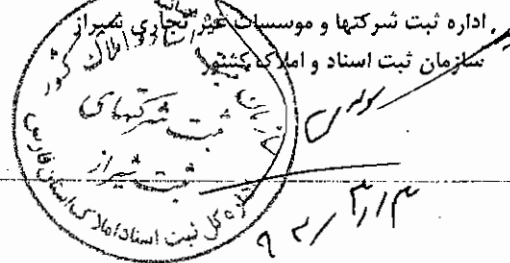 اداره ثبت شرکتها و موسسات غیر تجاری شیراز
سازمان ثبت اسناد و املاک کشور
ثبت شرکتهای
ثبت شیراز
اداره کل ثبت اسناد و املاک استان فارس